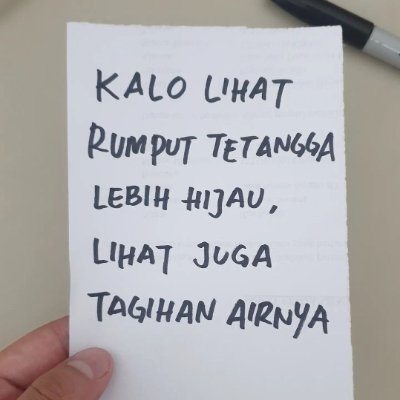 KALO LIHAT
RUMPUT TETANGGA
LEBIH HIJAU,
LIHAT JUGA
TAGIHAN AIRNYA